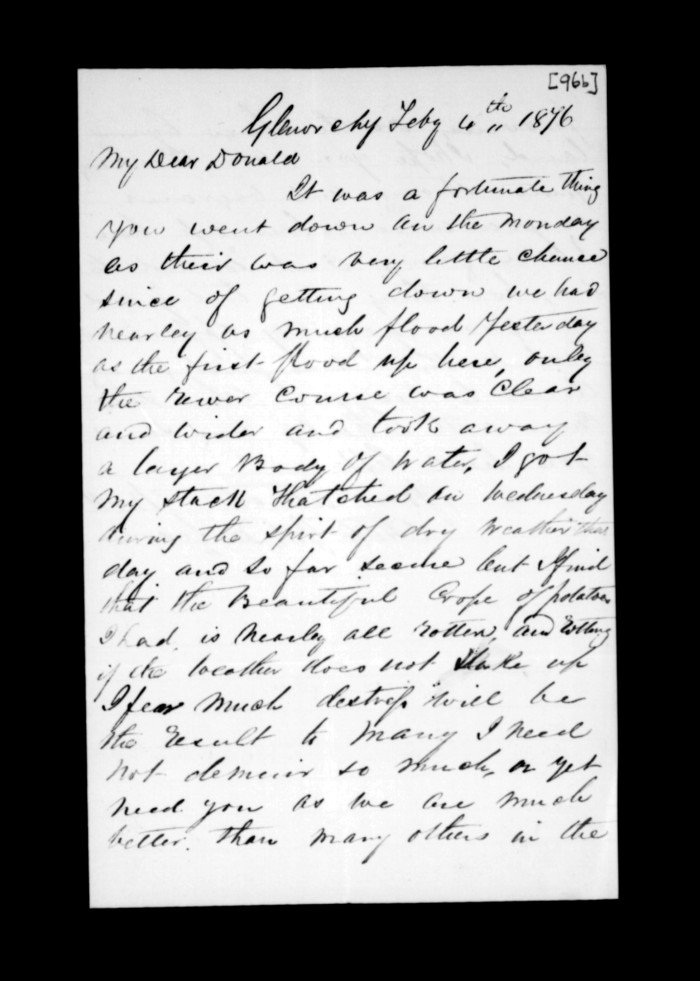 [966]
Glenorchy Feby 4th 1876
My Dear Donald
It was a fortunate thing
you went down on the Monday
as their was very little chance
since of getting down we had
nearley as much flood Yesterday
as the first flood up here, onley
the River Course was Clear
and wider and took away
a larger Body of Water, I got
My stack Thatched on Wednesday
during the spirt of dry Weather that
day and so far secure but I find
that the Beautiful Crope of potatoes
I had, is nearley all Rotten, and Rotting
if the Weather does not take up
I fear Much distress will be
the Result to Many I need
not demuir so much, or yet
need you as we are much
better. than many others in the